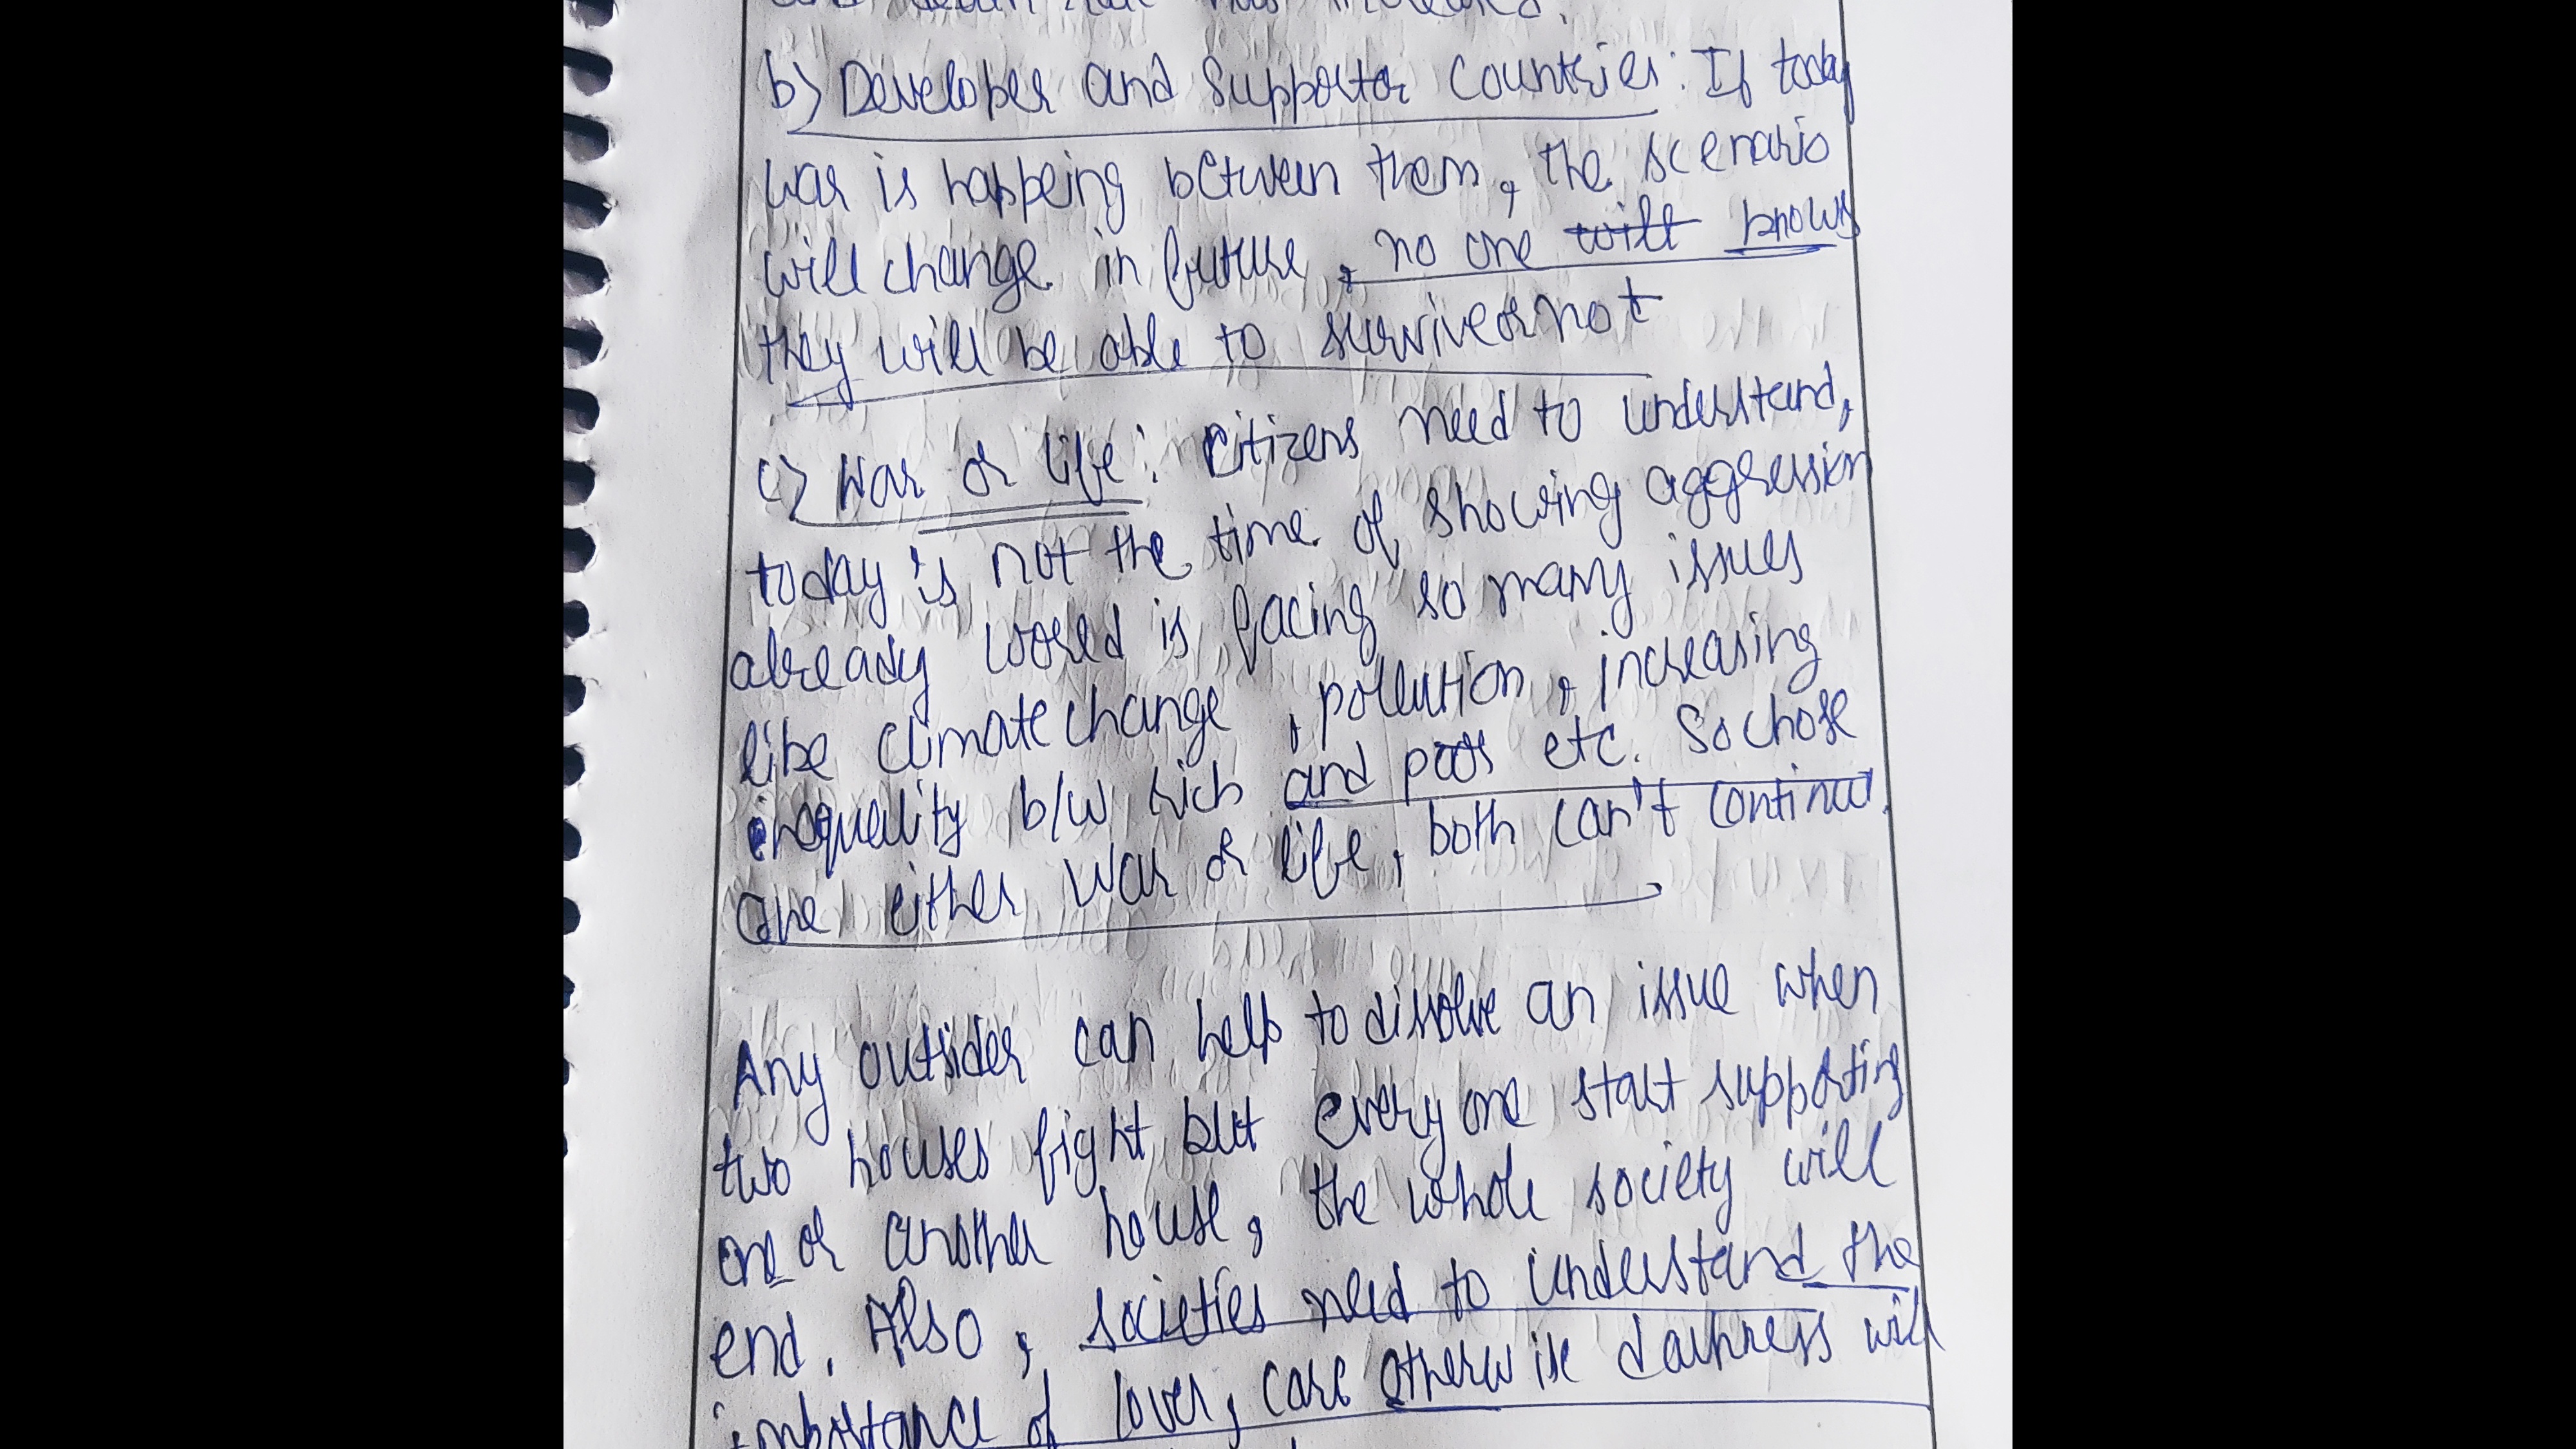 b) Developer and Supporter Countries: If today
war is happeing between them, the scenario
will change in future, no one will knows
they will be able to survive or not
c) War or life: Citizens need to understand,
today is not the time of showing aggression
already world is facing so many issues
like climate change, pollution, increasing
inequality b/w rich and poor etc. So chose
one either war or life, both can't continue.
Any outsider can help to dissolve an issue when
two houses fight but everyone start supporting
one or another house, the whole society will
end. Also, societies need to understand the
importance of lover, care otherwise darkness will